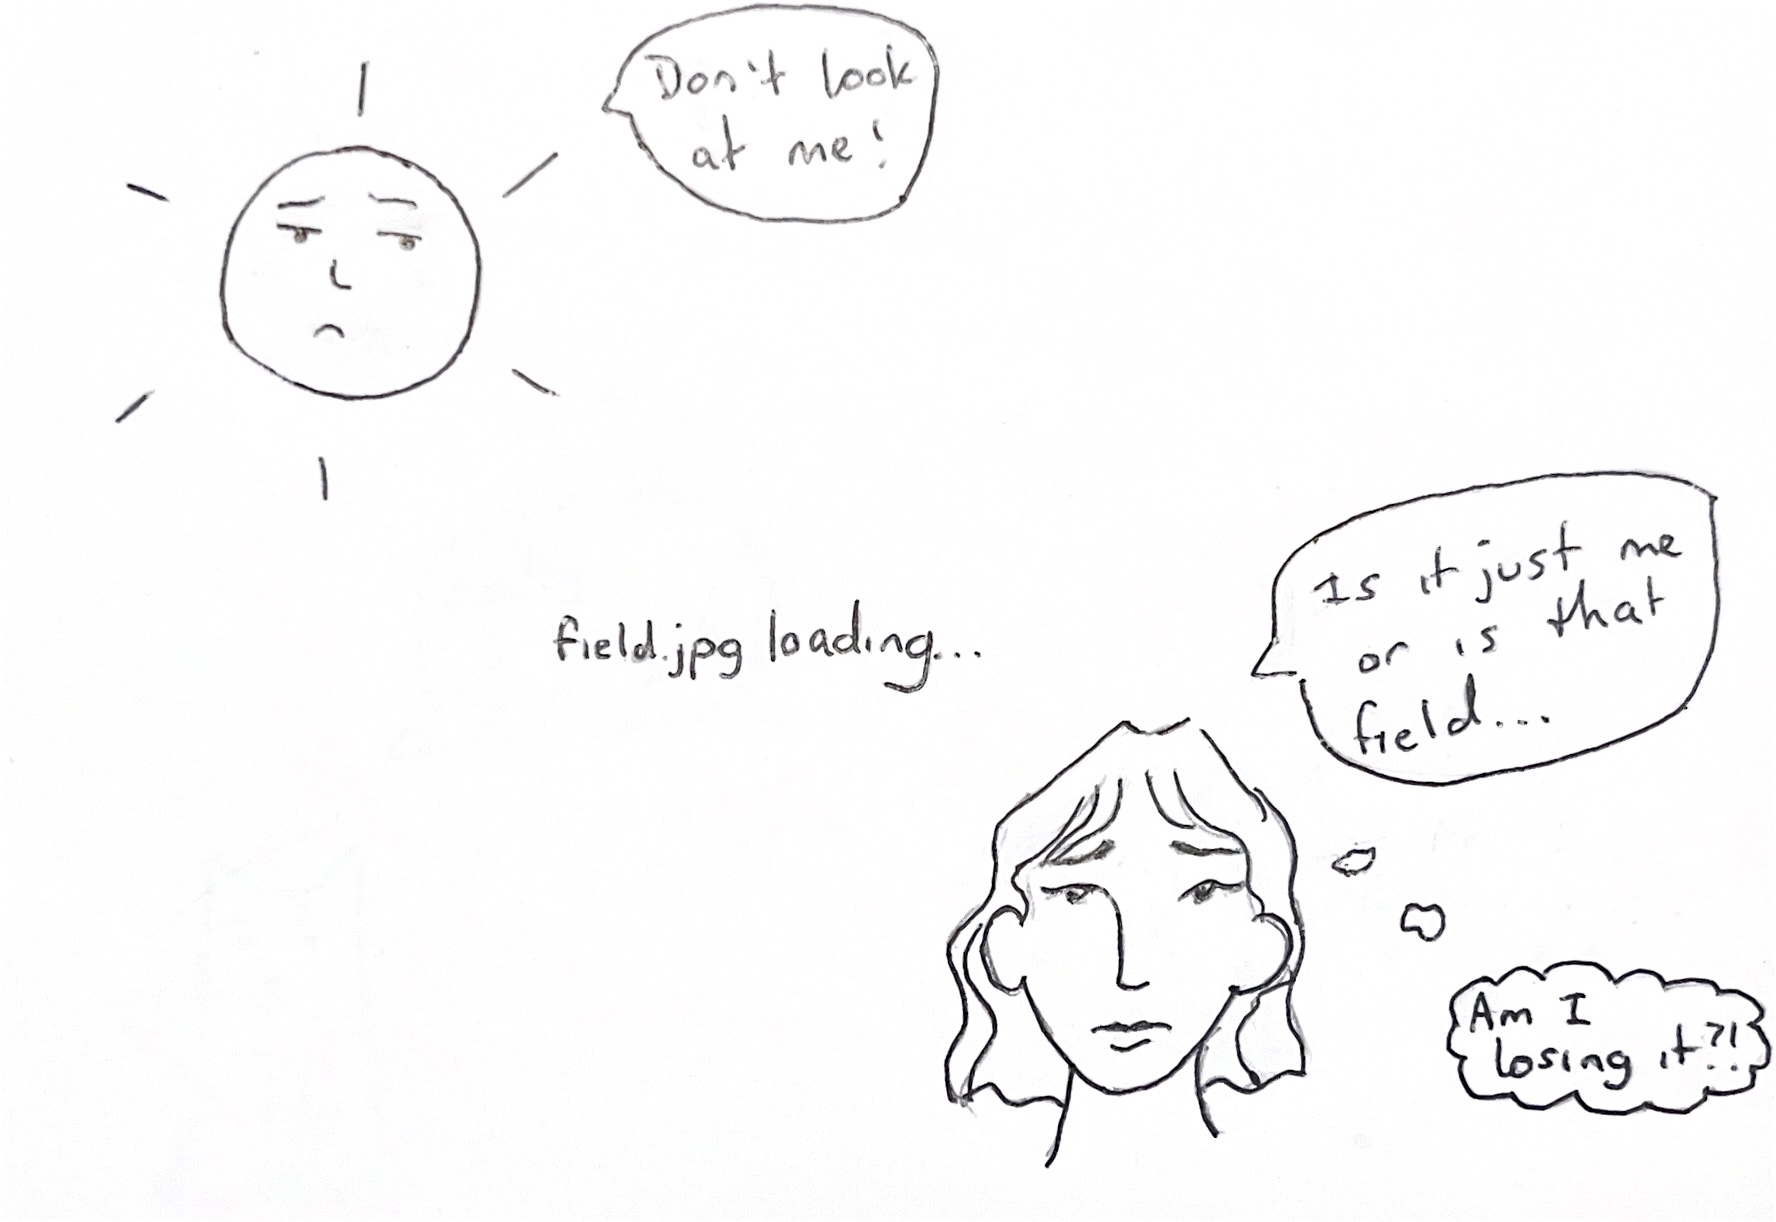 Don't look
at me!
field.jpg loading...
Is it just me
or is that
field...
Am I
losing it?!